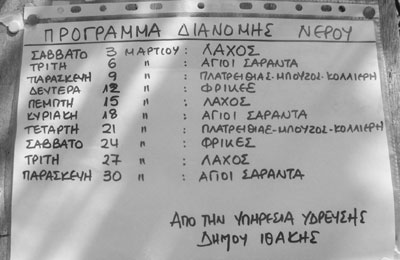 ΠΡΟΓΡΑΜΜΑ ΔΙΑΝΟΜΗΣ ΝΕΡΟΥ
ΣΑΒΒΑΤΟ 3 ΜΑΡΤΙΟΥ : ΛΑΧΟΣ
ΤΡΙΤΗ 6 " : ΑΓΙΟΙ ΣΑΡΑΝΤΑ
ΠΑΡΑΣΚΕΥΗ 9 " : ΠΛΑΤΡΕΙΘΙΑΣ-ΜΠΟΥΖΟΣ-ΚΟΛΛΙΕΡΗ
ΔΕΥΤΕΡΑ 12 " : ΦΡΙΚΕΣ
ΠΕΜΠΤΗ 15 " : ΛΑΧΟΣ
ΚΥΡΙΑΚΗ 18 " : ΑΓΙΟΙ ΣΑΡΑΝΤΑ
ΤΕΤΑΡΤΗ 21 " : ΠΛΑΤΡΕΙΘΙΑΣ-ΜΠΟΥΖΟΣ-ΚΟΛΛΙΕΡΗ
ΣΑΒΒΑΤΟ 24 " : ΦΡΙΚΕΣ
ΤΡΙΤΗ 27 " : ΛΑΧΟΣ
ΠΑΡΑΣΚΕΥΗ 30 " : ΑΓΙΟΙ ΣΑΡΑΝΤΑ
ΑΠΟ ΤΗΝ ΥΠΗΡΕΣΙΑ ΥΔΡΕΥΣΗΣ
ΔΗΜΟΥ ΙΘΑΚΗΣ